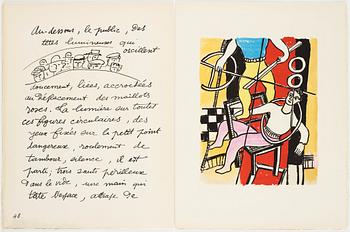 Au-dessous, le public, Des
têtes lumineuses qui
oscillent
doucement, lisses, accrochées
au déplacement des maillots
roses. La lumière sur toutes
ces figures circulaires, des
yeux fixés sur le petit point
dangereux, roulement de
tambour, silence, il est
parti; trois sauts périlleux
dans le vide, une main qui
tâte l'espace, attrape de
48